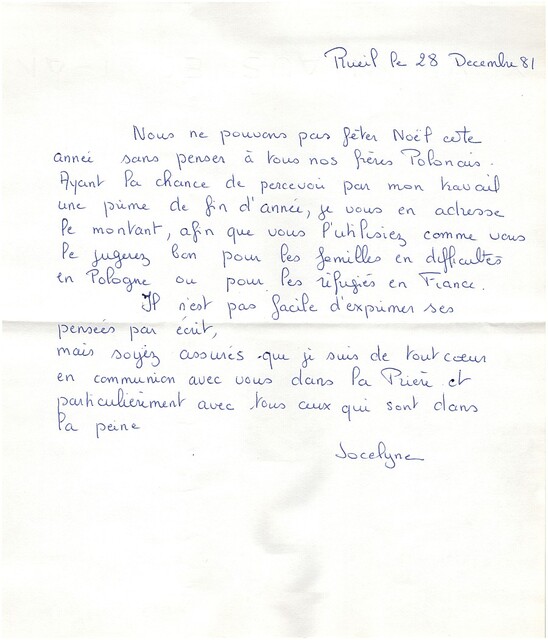 Rueil le 28 Decembre 81
Nous ne pouvons pas fêter Noël cette
année sans penser à tous nos frères Polonais.
Ayant la chance de percevoir par mon travail
une prime de fin d'année, je vous en adresse
le montant, afin que vous l'utilisiez comme vous
le jugerez bon pour les familles en difficultés
en Pologne ou pour les réfugiés en France.
Il n'est pas facile d'exprimer ses
pensées par écrit,
mais soyez assurés que je suis de tout cœur
en communion avec vous dans la Prière et
particulièrement avec tous ceux qui sont dans
la peine
Jocelyne